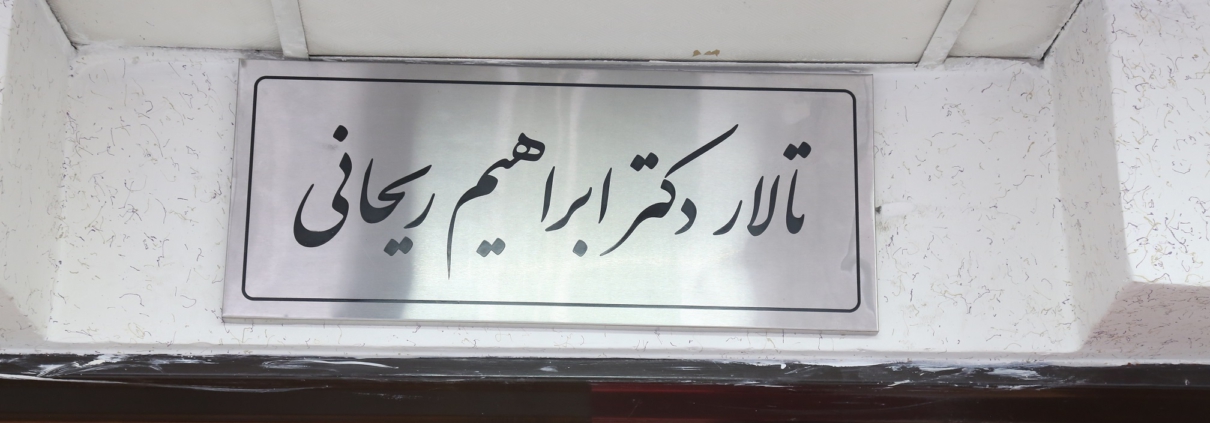 تالار دکتر ابراهیم ریحانی